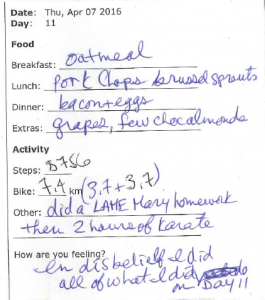 Date: Thu, Apr 07 2016
Day: 11
Food
Breakfast: Oatmeal
Lunch: Pork Chops brussel sprouts
Dinner: bacon + eggs
Extras: grapes, few choc almonds
Activity
Steps: 8756
Bike: 7.4 km (3.7 + 3.7)
Other: did a LAME Mary homework
then 2 hours of karate
How are you feeling?
In disbelief I did
all of what I did
on Day 11